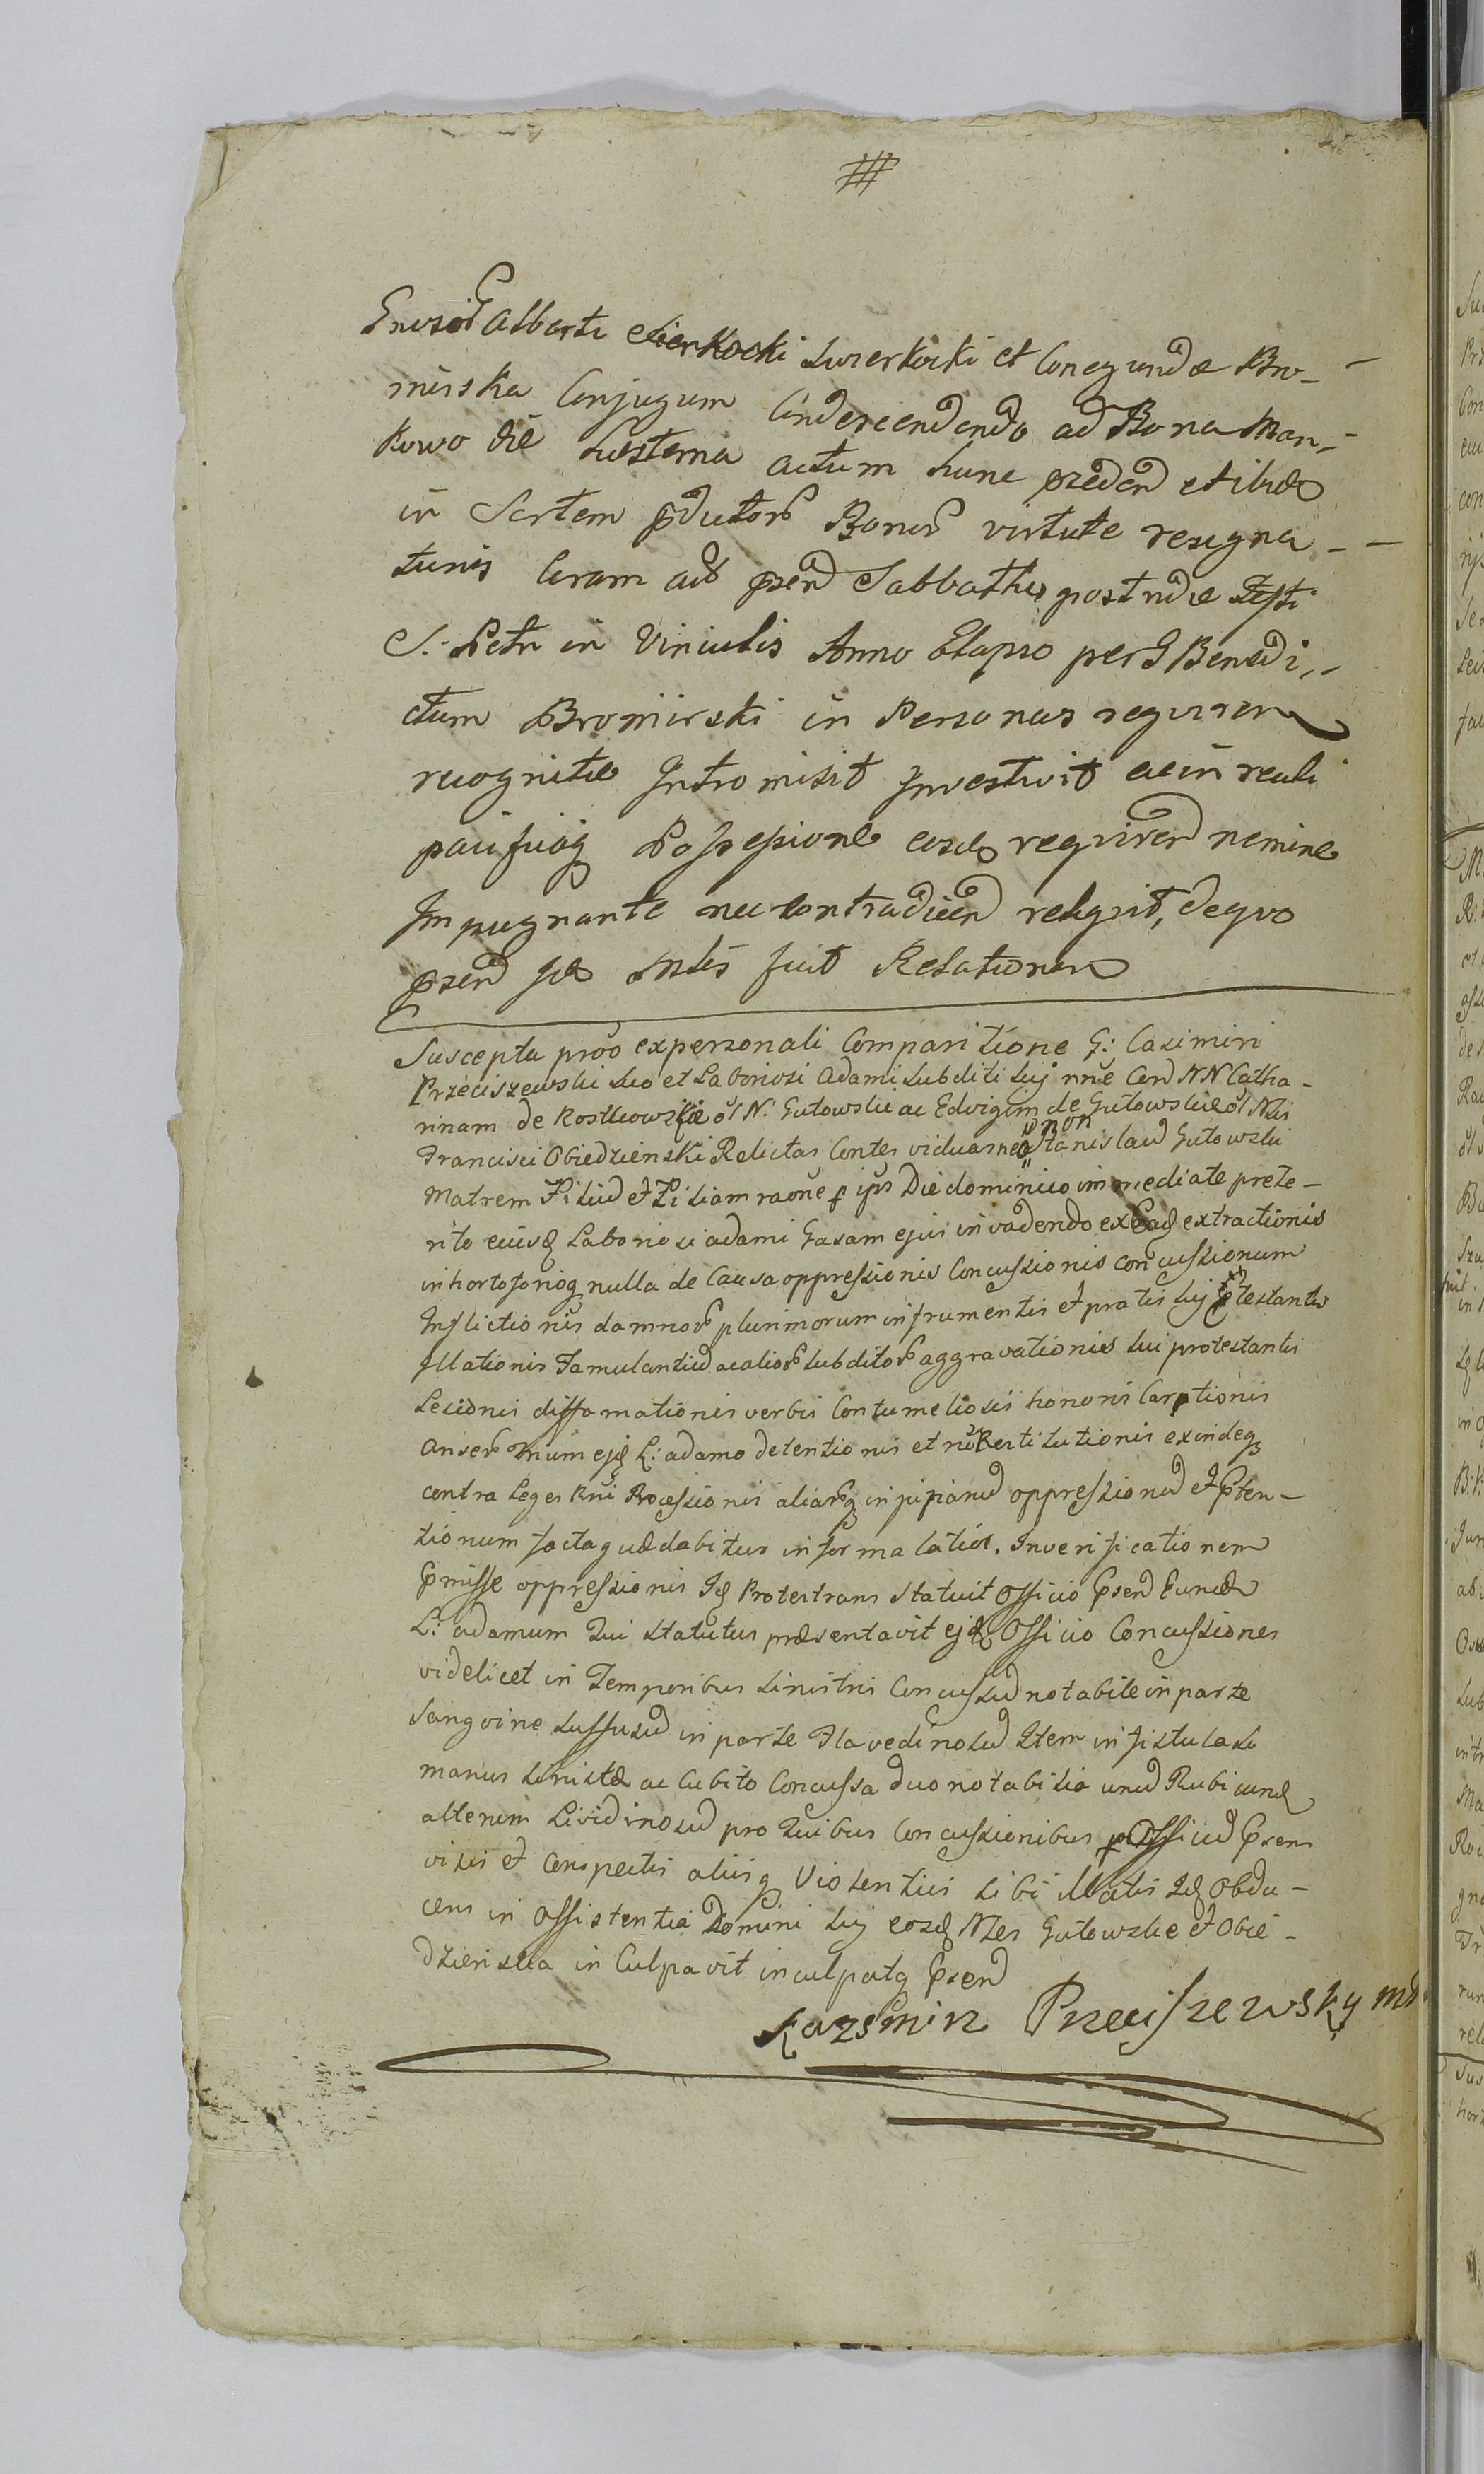 Alberti Sierkocki Swierkocki et Conegundæ Bro-
mirska Conjugum Condescendendo ad Bona Man-
kowo die hesterna actum hunc præden et ibidem
in Sortem Bonor virtute resigna-
tionis Coram act psen Sabbatho postridie Festi
S. Petri in Vinculis Anno Elapso per G Benedi-
ctum Bromirski in Personas requiren
recognitæ Intromisit Investivit ac in reali
pacificaq Possessione eosdem requiren nemine
Impugnante nec contradicen reliquit, de quo
psen fecit Relationem
Suscepta ex personali Comparitione G: Casimiri
Przeciszewski suo et Laboriosi Adami subditi suj nne Con NN Catha-
rinam de Kostkowskie N. Gutowski ac Edvigim de Gutowskie Nlis
Francisci Obiedzienski Relictas Contes viduas nec non Stanislaum Gutowski
Matrem Filium et Filiam raone p ipsos Die dominico immediate prete-
rito ejusd Laboriosi adami Casam ejus invadendo ex Ead extractionis
in horto nulla de Causa oppressionis Concussionis concussionum
Inflictionis damnor plurimorum in frumentis et pratis suj Ptestantis
Illationis Famulantium ac alior subditor aggravationis sui protestantis
Lesionis diffamationis verbis Contumeliosis honoris Carptionis
Anser ejusd L: adamo detentionis et non Restitutionis exindeq
contra Leges Rni Processionis aliarq oppressionum et Pten-
tionum facta quæ dabitur in forma latiori. In verificationem
Pmisse oppressionis Id Protestans Statuit Officio Psen Eundem
L: adamum Qui statutus præsentavit ejd Officio Concussiones
videlicet in Temporibus sinistris Concussum notabile in parte
Sanguine suffusum in parte Flavedinosum Item in fistula
manus sinistræ ac Cubito Concussa duo notabilia unum Rubicund
alterum Lividinosum pro Quibus Concussionibus p Officium Psens
visis et conspectis aliisq Violentiis sibi Illatis Id Obdu-
cens in Assistentia Domini suj eosd Nles Gutowskie et Obie-
dzienska in Culpavit inculpatq Psen
Kazimirz Przeciszewsky mp